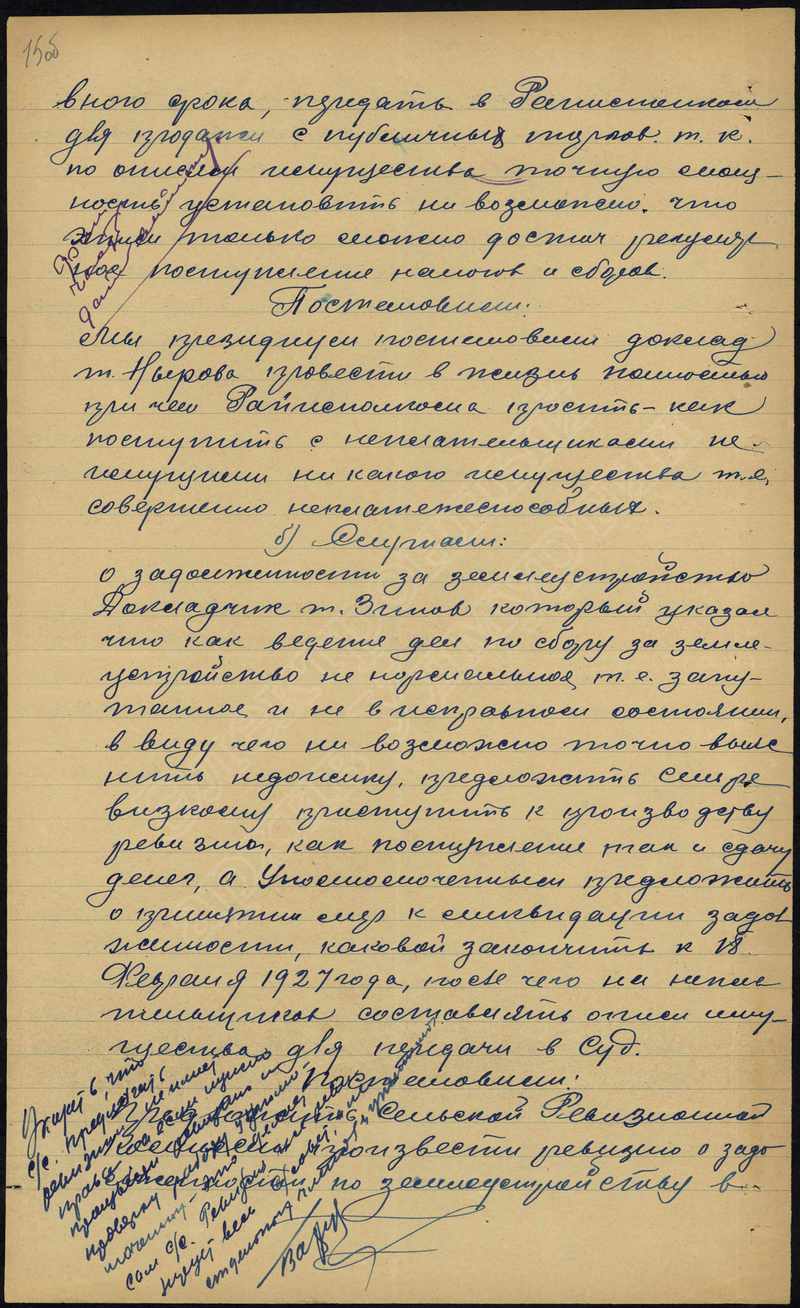 15об
вного срока, передать в Райисполком
для продажи с публичных торгов. т. к.
по описям имущества точную стои-
ность установить ни возможно. что
только можно достич регуляр
ное поступление налогов и сборов.
Постановили:
Мы президиум постановили доклад
т. Нырова провести в жизнь полностью
при чем Райисполкома просить - как
поступить с неплательщиками не
имущими ни какого имущества т.е.
совершенно неплатежеспособных.
б) Слушали:
о задолженности за землеустройство
Докладчик т. Зимов который указал
что как ведение дел по сбору за земле-
устройство не нормальное, т. е. запу-
танное и не в исправном состоянии,
в виду чего ни возможно точно выяс
нить недоимку, предложить Сельре
визкому приступить к производству
ревизии, как поступление так и сдачу
денег, а Уполномоченным предложить
о принятии мер к ликвидации задол
жимости, каковой закончить к 18
Февраля 1927 года, после чего на непла
тильщиков составлять описи иму-
щества для передачи в Суд.
Постановили:
Сельской Ревизионной
произвести ревизию о задол
по землеустройству в
Указать что
с/с. предложить
ревизион
права
проверку
сам с/с. Ревизион
весь